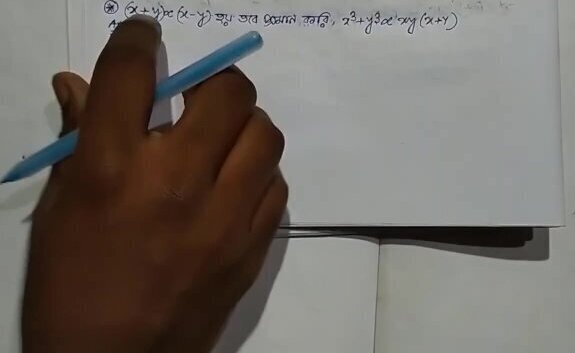 ⊛ (x+y)∝(x-y) হয় তবে প্রমাণ করি, x³+y³∝ xy(x+y)